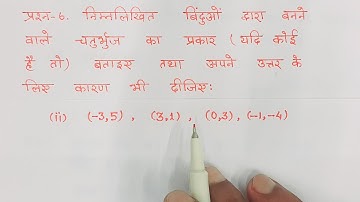 प्रश्न-6. निम्नलिखित बिंदुओं द्वारा बनने
वाले चतुर्भुज का प्रकार (यदि कोई
है तो) बताइए तथा अपने उत्तर के
लिए कारण भी दीजिए:
(ii) (-3,5) , (3,1) , (0,3), (-1,-4)